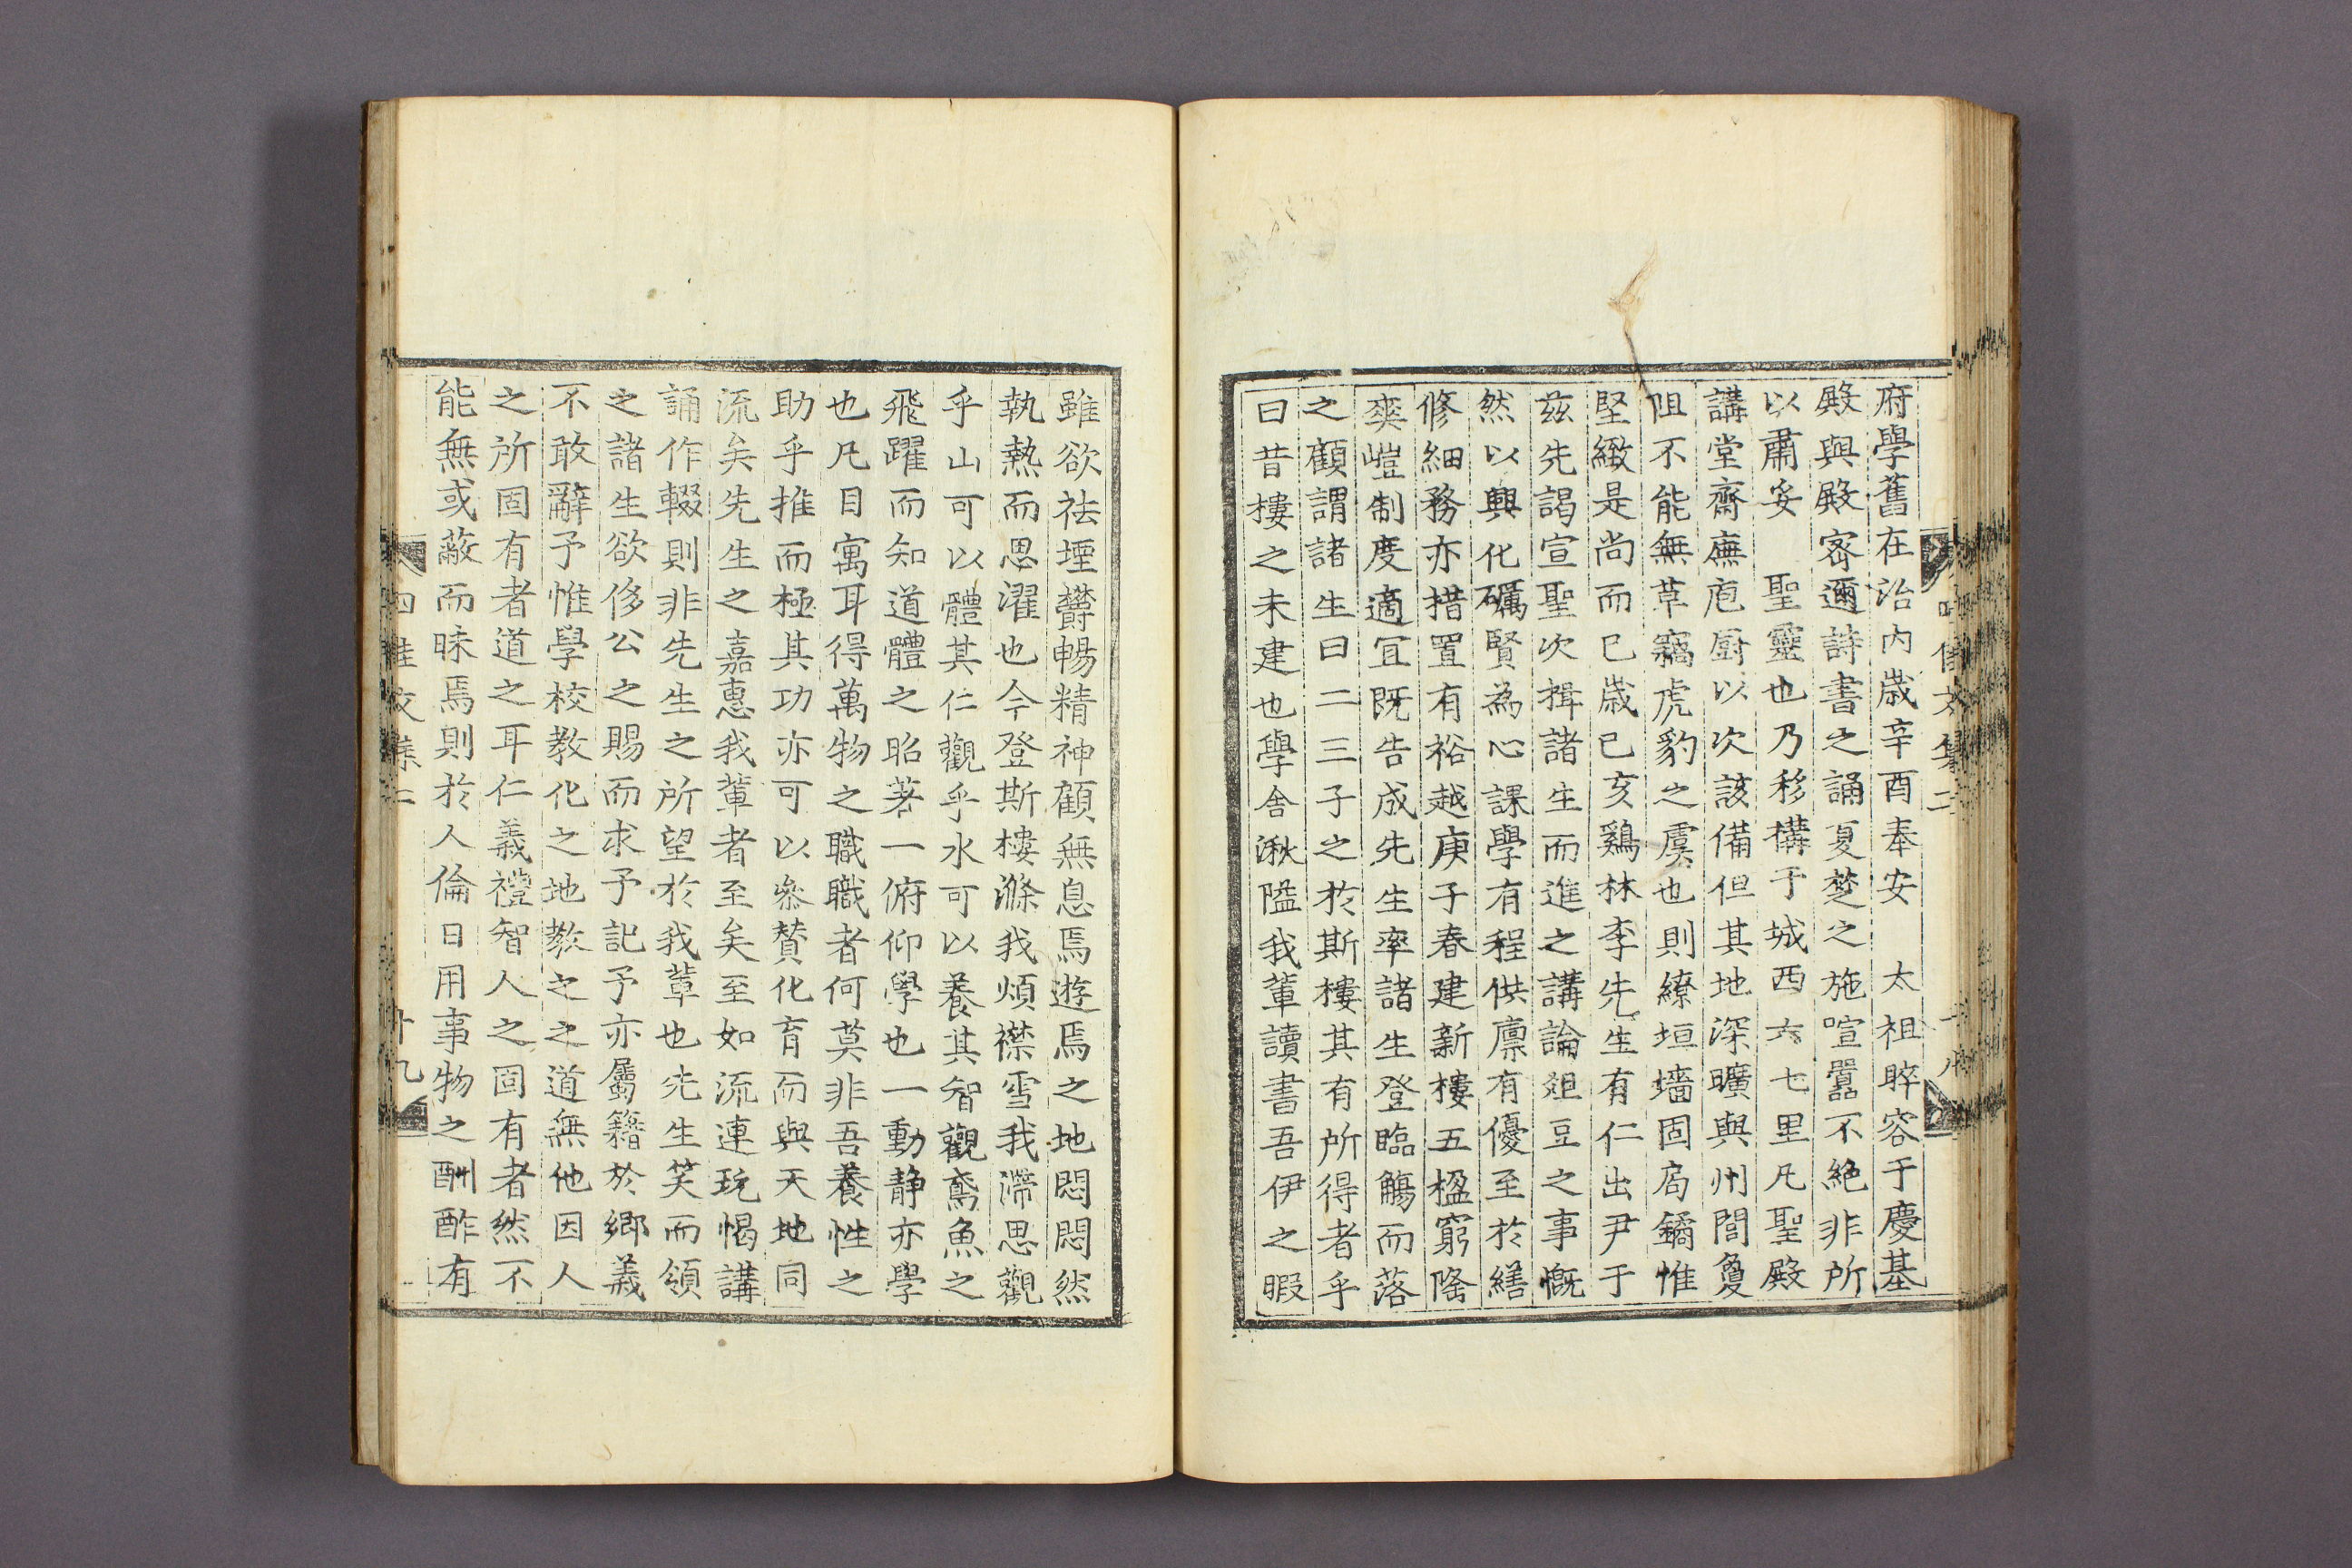 府學舊在治內歲辛酉奉安　太祖睟容于慶基
殿與殿密邇詩書之誦夏楚之施喧囂不絶非所
以肅妥　聖靈也乃移構于城西六七里凡聖殿
講堂齋廡庖厨以次該備但其地深曠與州閭敻
阻不能無草竊虎豹之虞也則繚垣墻固扃鐍惟
堅緻是尚而已歲己亥鷄林李先生有仁出尹于
玆先謁宣聖次揖諸生而進之講論俎豆之事慨
然以興化礪賢為心課學有程供廩有優至於繕
修細務亦措置有裕越庚子春建新樓五楹窮隆
爽塏制度適宜既告成先生率諸生登臨觴而落
之顧謂諸生曰二三子之於斯樓其有所得者乎
曰昔樓之未建也學舍湫隘我軰讀書吾伊之暇
雖欲祛堙欝暢精神顧無息焉遊焉之地悶悶然
執熱而思濯也今登斯樓滌我煩襟雪我滯思觀
乎山可以體其仁觀乎水可以養其智觀鳶魚之
飛躍而知道體之昭著一俯仰學也一動静亦學
也凡目寓耳得萬物之職職者何莫非吾養性之
助乎推而極其功亦可以叅賛化育而與天地同
流矣先生之嘉惠我軰者至矣至如流連玩愒講
誦作輟則非先生之所望於我軰也先生笑而領
之諸生欲侈公之賜而求予記予亦屬籍於鄉義
不敢辭予惟學校教化之地教之之道無他因人
之所固有者道之耳仁義禮智人之固有者然不
能無或蔽而昧焉則於人倫日用事物之酬酢有
四佳文集二
十九